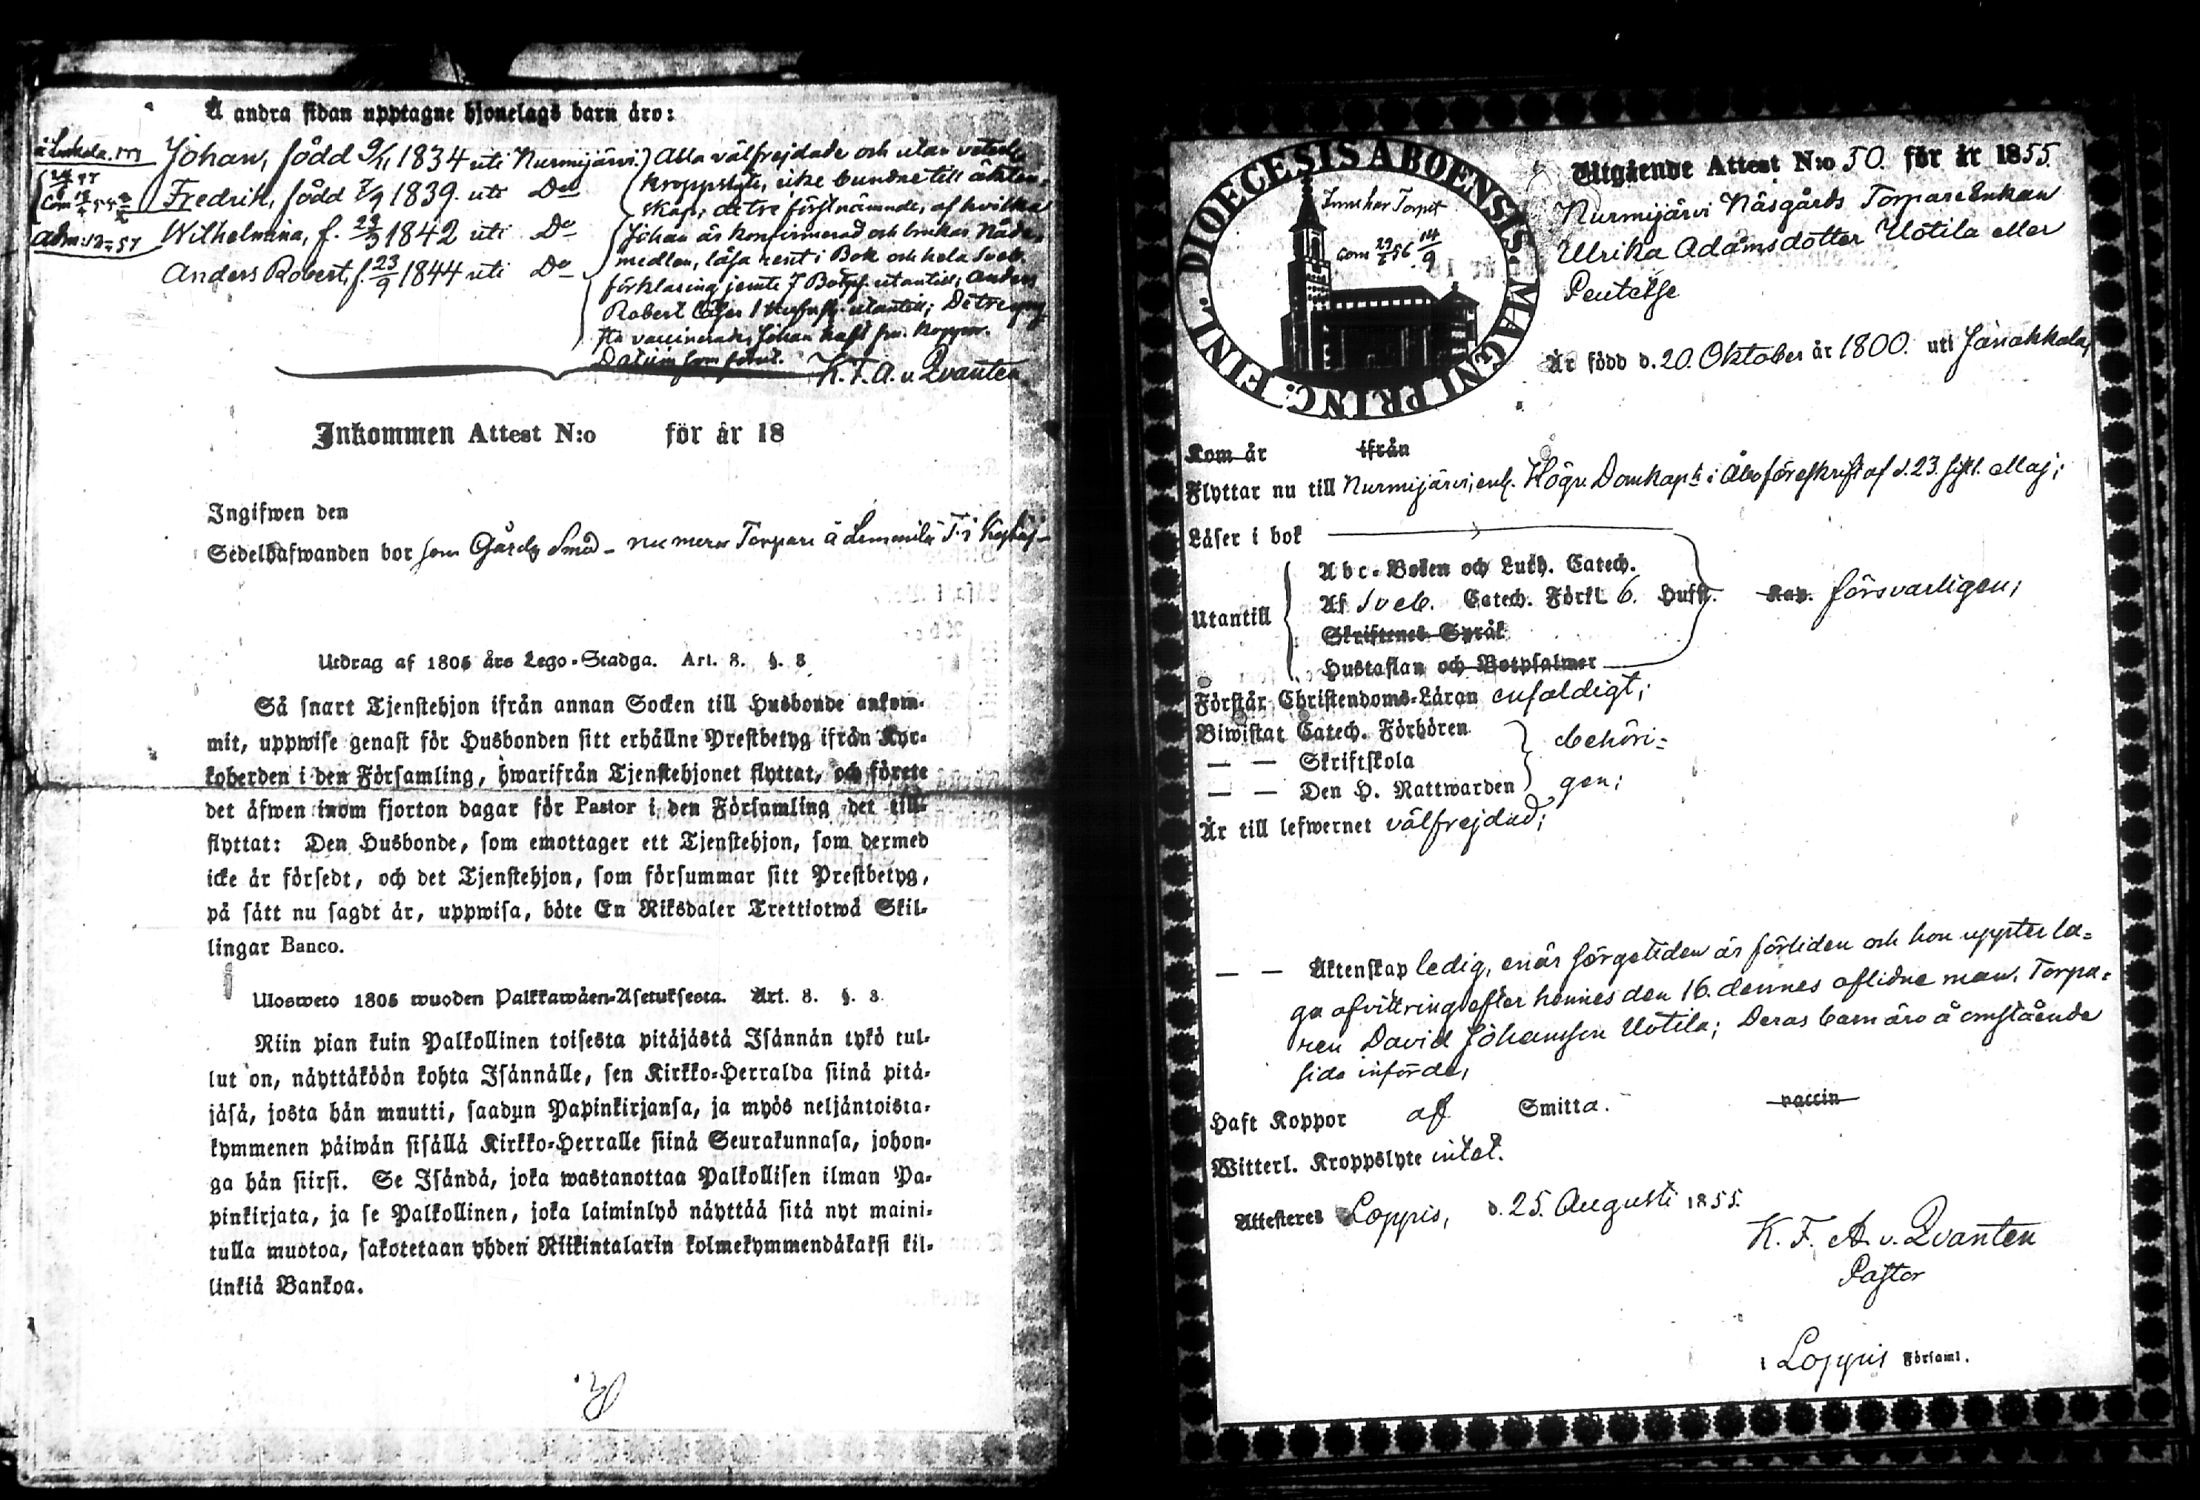 Å andra sidan upptagne hjonelags barn äro:
Johan, född 9/11 1834 uti Nurmijärvi.
Fredrik, född 7/9 1839. uti Do
Wilhelmina, f. 23/3 1842 uti Do
Anders Robert, f. 23/9 1844 uti Do
Alla välfrejdade och utan veterl.
kroppslyte, icke bundne till äkten-
skap; de tre förstnämnde, af hvilka
Johan är konfirmerad och brukar Nåde-
medlen, läsa rent i Bok och hela Sveb.
förklaring jemte 7 Botps. utantill; Anders
Robert läser 1 Hufvst. utantill; De tre yng-
sta vaccinerade, Johan haft sm. koppor.
Datum som förut.
K. F. A. v. Qvanten
Inkommen Attest N:o för år 18
Ingifwen den
Sedelhafwanden bor som Gårds Smed - numera Torpare å
Utdrag af 1805 års Lego-Stadga. Art. 8. §. 8
Så snart Tjenstehjon ifrån annan Socken till Husbonde ankom-
mit, uppwise genast för Husbonden sitt erhållne Prestbetyg ifrån Kyr-
koherden i den Församling, hwarifrån Tjenstehjonet flyttat, och förete
det äfwen inom fjorton dagar för Pastor i den Församling det till-
flyttat: Den Husbonde, som emottager ett Tjenstehjon, som dermed
icke är försedt, och det Tjenstehjon, som försummar sitt Prestbetyg,
på sätt nu sagdt är, uppwisa, böte En Riksdaler Trettiotwå Skil-
lingar Banco.
Ulosweto 1805 wuoden Palkkawäen-Asetuksesta. Art. 8. §. 8.
Niin pian kuin Palkollinen toisesta pitäjästä Isännän tykö tul-
lut on, näyttäköön kohta Isännälle, sen Kirkko-Herralda siinä pitä-
jäsä, josta hän muutti, saadun Papinkirjansa, ja myös neljäntoista-
kymmenen päiwän sisällä Kirkko-Herralle siinä Seurakunnasa, johon-
ga hän siirsi. Se Isändä, joka wastanottaa Palkollisen ilman Pa-
pinkirjata, ja se Palkollinen, joka laiminlyö näyttää sitä nyt maini-
tulla muotoa, sakotetaan yhden Riikintalarin kolmekymmendäkaksi kil-
linkiä Bankoa.
DIOECESIS ABOENSIS. MAGNI PRINC. FINL.
Innehar Torpet
Com 29/6 56 14/9
Utgående Attest N:o 50. för år 1855.
Nurmijärvi Näsgårds Torpare Enkan
Ulrika Adamsdotter Uotila eller
Är född d. 20. Oktober år 1800. uti Janakkala,
Kom år ifrån
Flyttar nu till Nurmijärvi, enl. Högv. Domkap:ts i Åbo föreskrift af d. 23. sistl. Maj;
Läser i bok
Utantill
Abc-Boken och Luth. Catech.
Af Sveb. Catech. Förkl. 6. Hufst. Kap. försvarligen;
Skriftenes Språk
Hustaflan och Botpsalmer
Förstår Christendoms-Läran enfaldigt;
Biwistat Catech. Förhören
— — Skriftskola
— — Den H. Nattwarden
behöri-
gen;
Är till lefwernet välfrejdad;
— — Äktenskap ledig, enär sorgetiden är förliden och hon uppter la-
ga afvittring efter hennes den 16. dennes aflidne man, Torpa-
ren David Johansson Uotila; Deras barn äro å omstående
sida införde,
Haft Koppor af Smitta. vaccin
Witterl. Kroppslyte intet.
Attesteres Loppis, d. 25. Augusti 1855.
K. F. A. v. Qvanten
Pastor
i Loppis Församl.